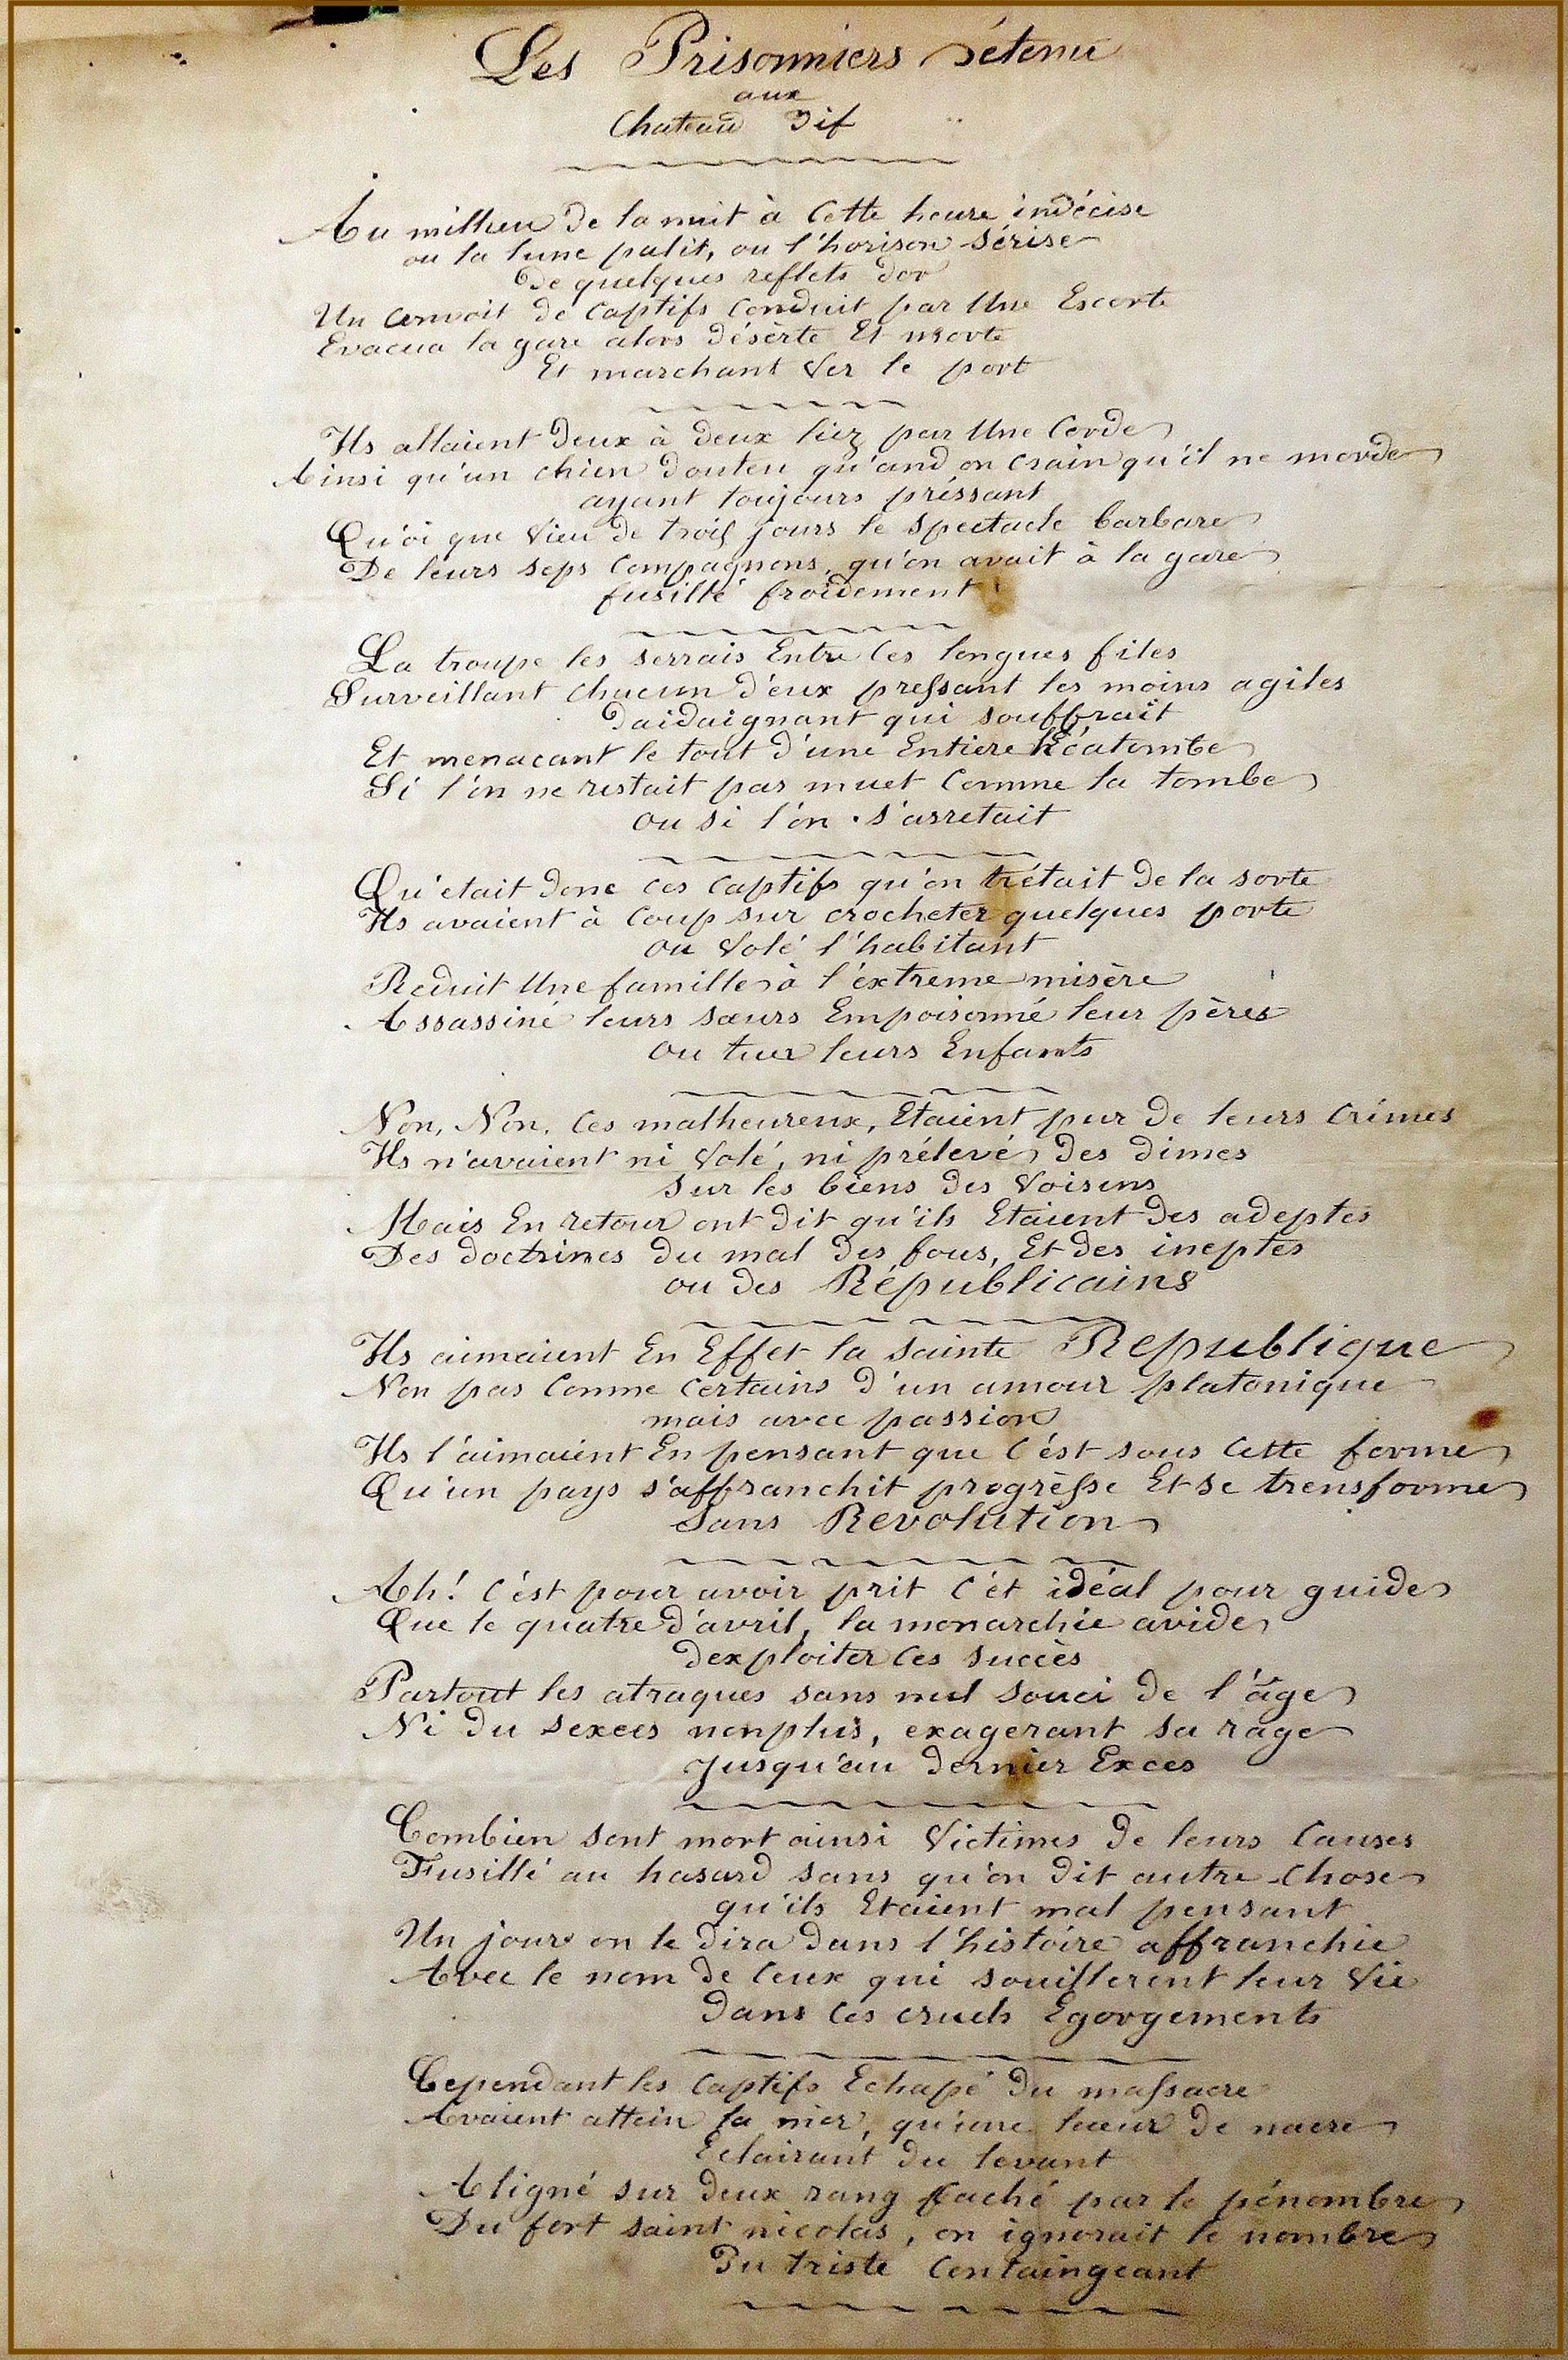 Les Prisonniers Détenu
aux
Chateau Dif
Au millieu de la nuit à Cette heure indécise
ou la lune palit, ou l'horison sérise
de quelques reflets dor
Un convoit de Captifs Conduit par Une Escorte
Evacua la gare alors désèrte Et morte
Et marchant Ver le port
Ils allaient deux à deux liez par Une Corde
Ainsi qu'un chien douteu qu'and on crain qu'il ne morde
ayant toujours préssant
Qu'oi que Vieu de trois jours le spectacle barbare
De leurs seps Compagnons, qu'on avait à la gare
fusillé froidement
La troupe les serrais Entre Ces longues files
Surveillant chacun d'eux pressant les moins agiles
daidaignant qui souffrait
Et menacant le tout d'une Entiere Hécatombe
Si l'on ne restait pas muet Comme la tombe
ou si l'on s'arretait
Qu'etait donc ces Captifs qu'on trétait de la sorte
Ils avaient à Coup sur crocheter quelques porte
ou Volé l'habitant
Reduit Une famille à l'éxtreme misère
Assassiné leurs sœurs Empoisonné leur pères
ou tuer leurs Enfants
Non, Non, Ces malheureux, Etaient pur de leurs Crimes
Ils n'avaient ni Volé, ni prélevé des dimes
Sur les biens des Voisins
Mais En retour ont dit qu'ils Etaient des adeptes
Des doctrines du mal des fous, Et des ineptes
ou des Républicains
Ils aimaient En Effet la sainte Republique
Non pas Comme Certains d'un amour platonique
mais avec passion
Ils l'aimaient En pensant que C'ést sous Cette forme
Qu'un pays s'affranchit progrèsse Et se trensforme
Sans Revolution
Ah! C'ést pour avoir prit C'ét idéal pour guide
Que le quatre d'avril, la monarchie avide
dexploiter Ces succès
Partout les atraques sans nul souci de l'âge
Ni du sexees nonplus, exagerant sa rage
Jusqu'au dernier Exces
Combien sont mort ainsi Victimes de leurs Causes
Fusillé au hasard sans qu'on dit autre Chose
qu'ils Etaient mal pensant
Un jour on le dira dans l'histoire affranchie
Avec le nom de Ceux qui souillerent leur Vie
dans Ces cruels Egorgements
Cependant les Captifs Echapé du massacre
Avaient attein la mer, qu'une lueur de nacre
Eclairant du levant
Aligné sur deux rang caché par le pénombre
Du fort saint nicolas, on ignorait le nombre
Du triste Containgeant